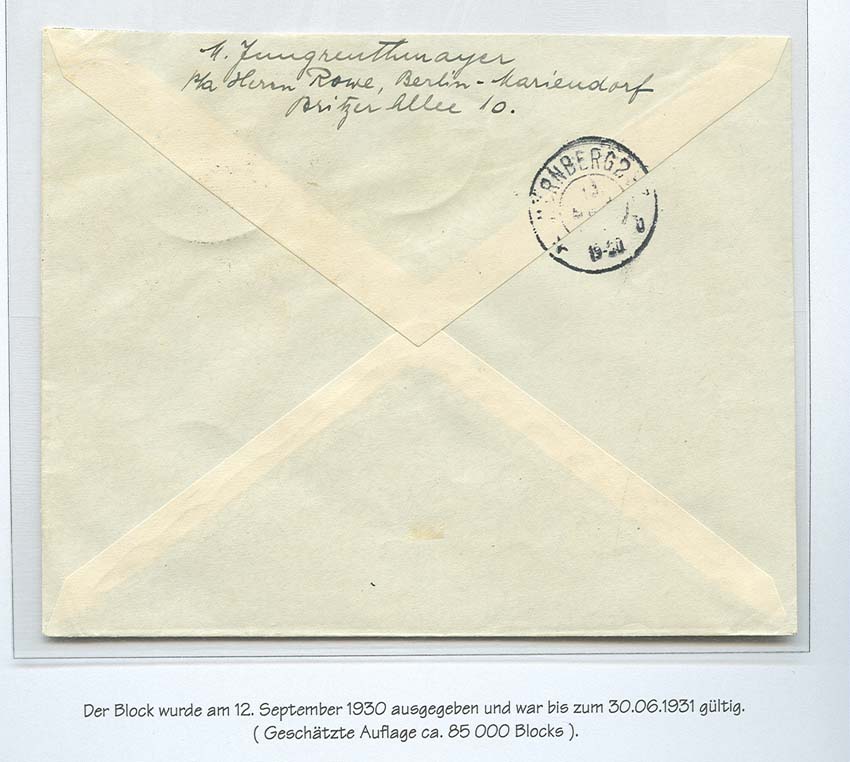 M. Jungreuthmayer
p/a Herrn Rowe, Berlin-Mariendorf
Britzer Allee 10.
NÜRNBERG 2
19-20
Der Block wurde am 12. September 1930 ausgegeben und war bis zum 30.06.1931 gültig.
( Geschätzte Auflage ca. 85 000 Blocks ).